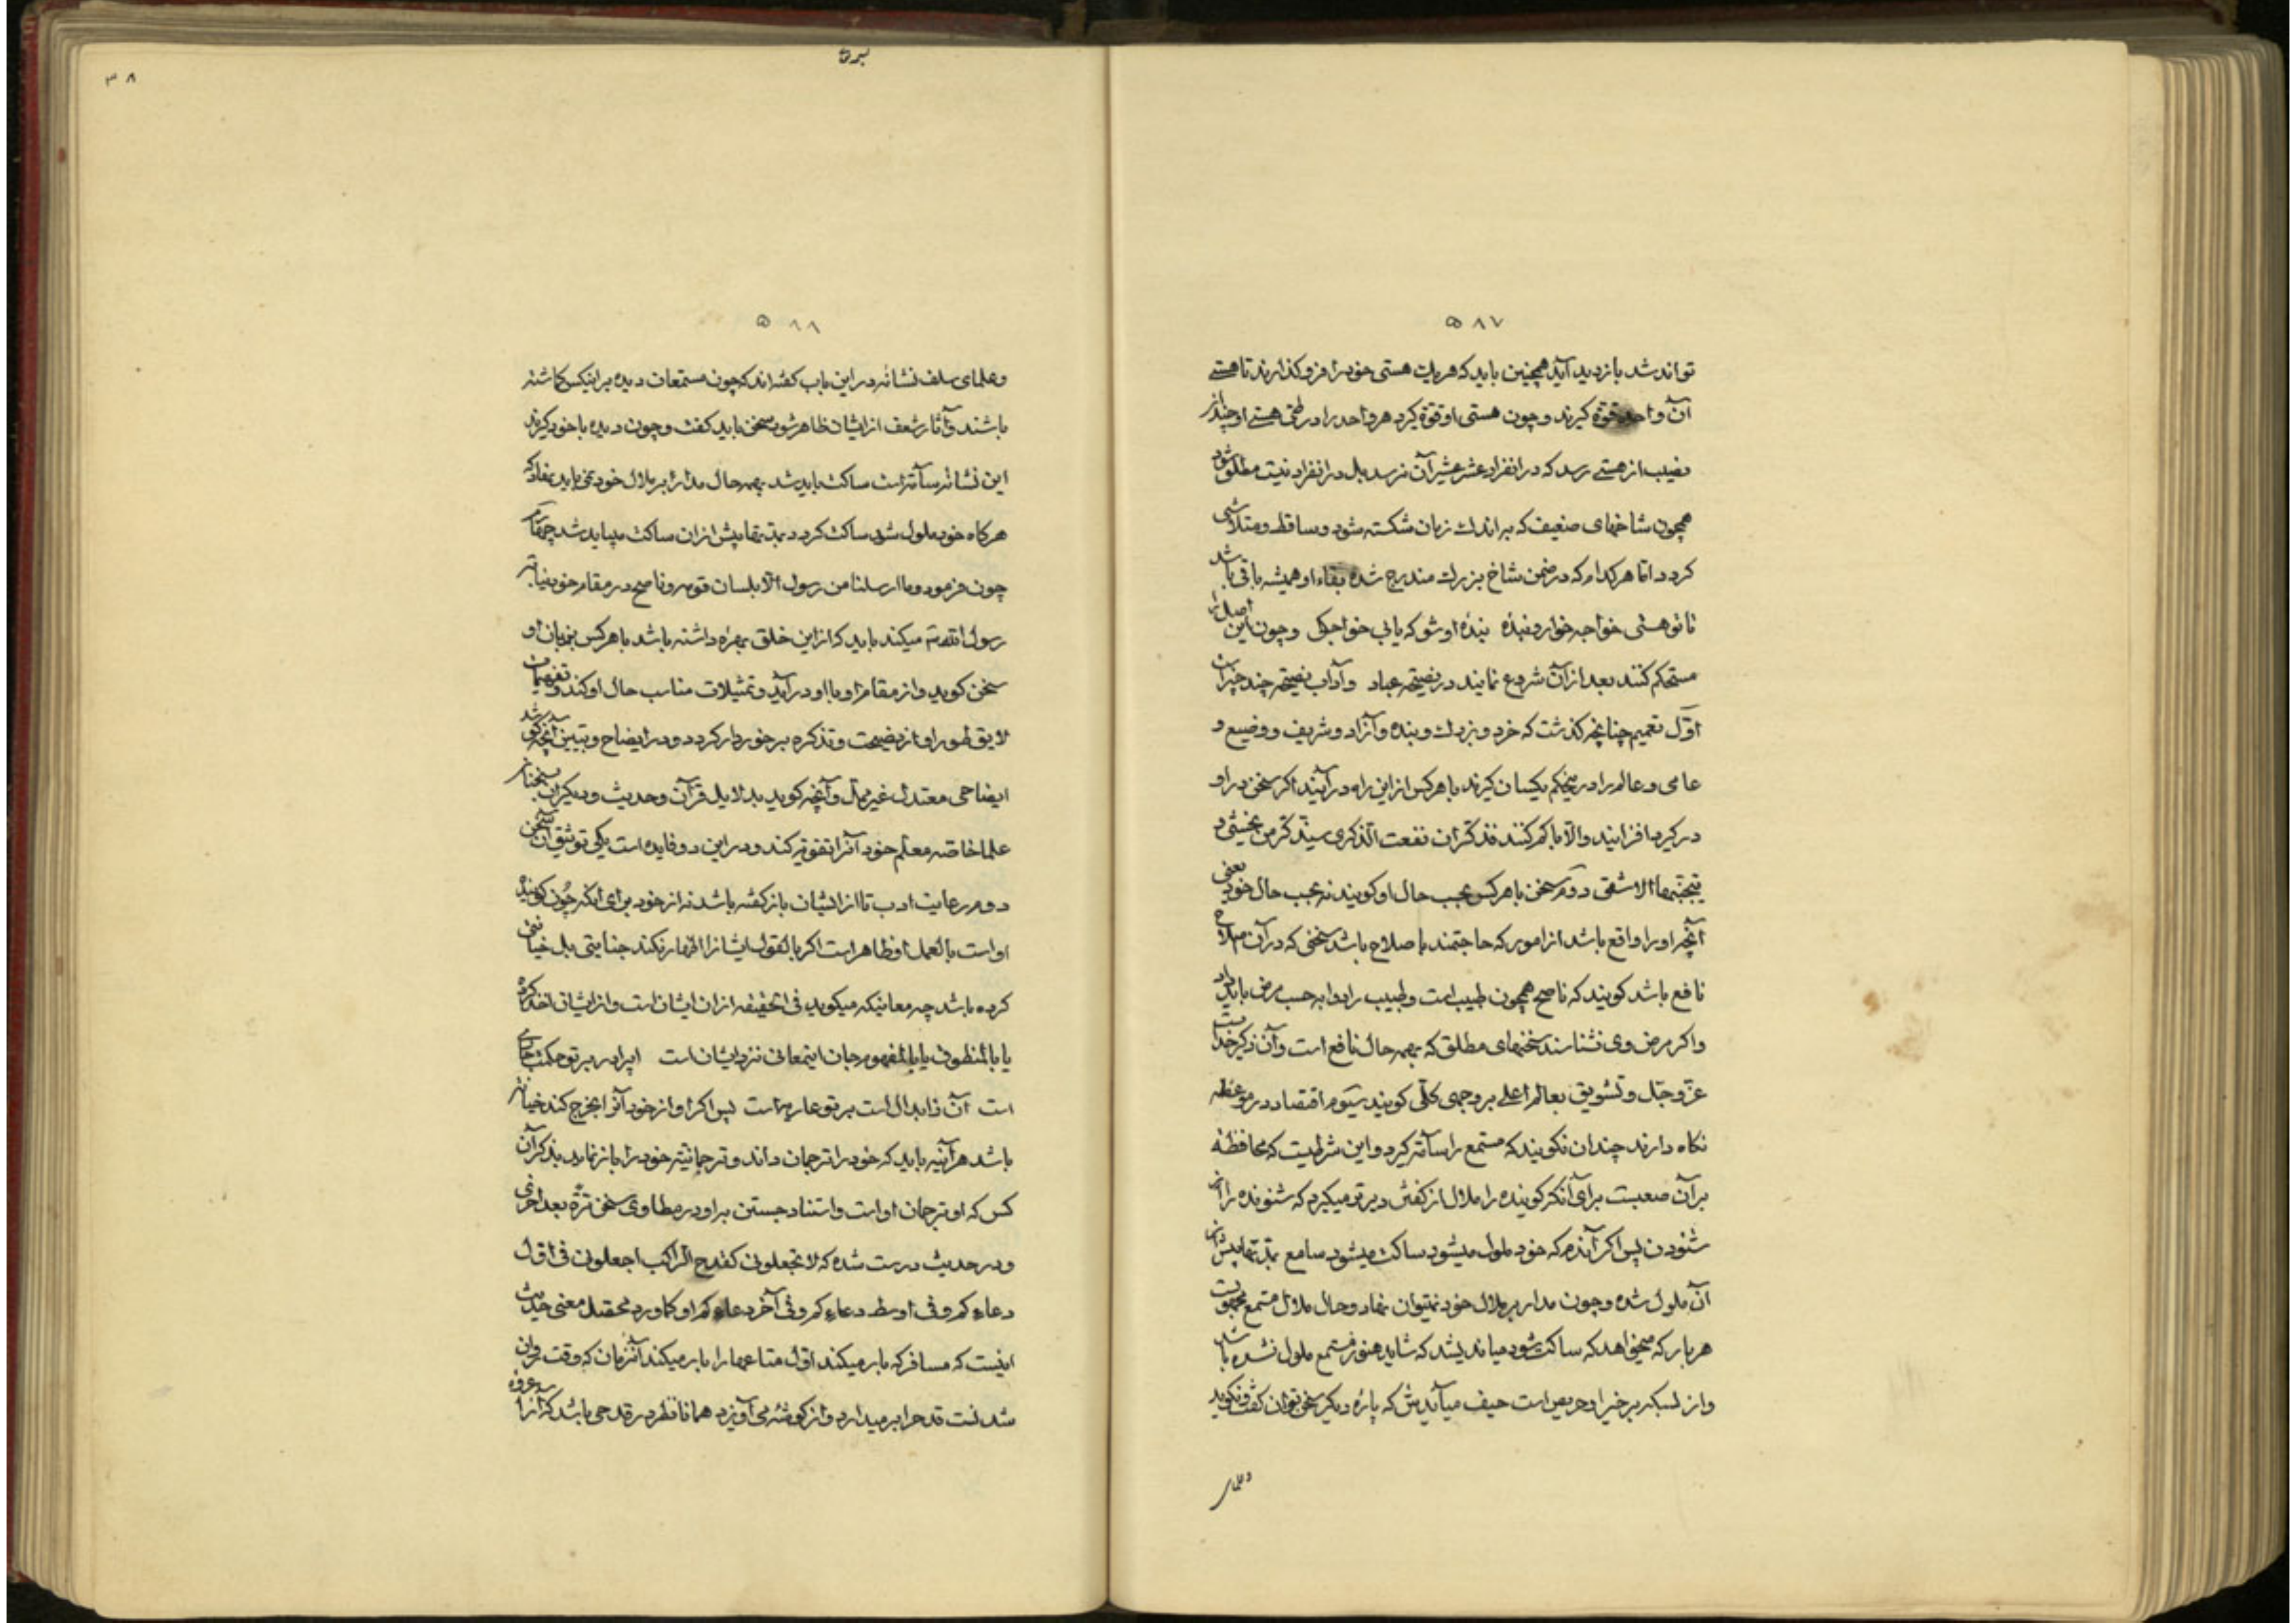 ۵۸۷
تواند شد بازدید آید همچنین باید که هر یک هستی خود را فرو گذارند تا هستی
آن واحد قوة گیرند و چون هستی او قوة گیرد هر واحد را در طی هستی او چندان
نصیب از هستی رسد که در انفراد عشر عشیر آن نرسد بل در انفراد نیست مطلق شود
همچون شاخهای ضعیف که به اندک زمان شکسته شود و ساقط و متلاشی
کردد اما هر کدام که در ضمن شاخ بزرک مندرج شده بقاء او همیشه باقی باشد
تا تو هستی خواجه خوارد بنده بنده او شو که یابی خواجکی و چون این اصل را
مستحکم کنند بعد از آن شروع نمایند در نصیحة عباد و آداب نصیحة چند چیز است
اول تعمیم چنانچه کذشت که خرد و بزرك و بنده و آزاد و شریف و وضیع و
عامی و عالم را در نیحکم یکسان کیرند با هر کس از این راه در آیند اکر سخن در او
در کیرد افزایند والا با کم کنند فذکر ان نفعت الذکری سیذکر من یخشی و
یتجنبها الاشقی دوم سخن با هر کس بحسب حال او کویند نه بحسب حال خود یعنی
آنچه او را واقع باشد از امور که حاجتمند باصلاح باشد سخنی که در آن اصلاح
نافع باشد کویند که ناصح همچون طبیب است و طبیب را دوا به حسب مرض باید داد
و اکر مرض وی نشناسند سخنهای مطلق که بهمه حال نافع است و آن ذکر خداست
عز و جل و تشویق بعالم اعلی بر وجهی کلی کویند سیوم اقتصاد در موعظه
نکاه دارند چندان نکویند که مستمع را سآمة کیرد و این شرطیست که محافظة
بر آن صعبست برای آنکه کوینده را ملال از کفتن دیرتر میکیرد که شنونده را از
شنودن پس اکر آندم که خود ملول میشود ساکت میشود سامع بمدتها پیش از
آن ملول شده و چون مدار بر ملال خود نمیتوان نهاد و حال ملال مستمع مجهولست
هر بار که میخواهد که ساکت شود میاندیشد که شاید هنوز مستمع ملول نشده باشد
و از بسکه بر خیر او حریص است حیف میآیدش که پارهٔ دیکر سخن توان کفت و نکوید
وعلمای
۳۸
۵۸۸
وعلمای سلف نشانه در این باب کفته‌اند که چون مستمعان دیده بر اینکس کاشته
باشند و آثار شعف از ایشان ظاهر شود سخن باید کفت و چون دیده با خود کیرند
این نشانه سآمة است ساکت باید شد بهمه حال مدار بر ملال خود نمی‌باید نهاد که
هرکاه خود ملول شود ساکت کردد بمدتها پیش از ان ساکت میباید شد
چون فرمود و ما ارسلنا من رسول الا بلسان قومه و ناصح در مقام خود نیابة
رسول الله ص میکند باید که از این خلق بهره داشته باشد با هر کس بزبان او
سخن کوید و از مقام او با او در آید و تمثیلات مناسب حال او کند و تفهیمات
لایق طور او از نصیحت و تذکره برخوردار کردد و در ایضاح و تبیین آنچه کوید
ایضاحی معتدل غیر ممل و آنچه کوید بدلایل قرآن و حدیث و دیکر از سخنان
علما خاصه معلم خود آنرا تقویة کند و در این دو فایده است یکی توثیق آن سخن
دوم رعایت ادب تا از ایشان باز کفته باشد نه از خود برای آنکه چون کویندهٔ
او است بالعمل او ظاهر است اکر بالقول ایشانرا اظهار نکند جنایتی بل خیانتی
کرده باشد چه معانیکه میکوید فی الحقیقه از ان ایشان است و از ایشان اخذ کرده
یا بالمنطوق یا بالمفهوم جان اینمعانی نزد ایشان است ایبرادر بر تو حکمت جاری
است آن ز ابدال است بر تو عاریه است پس اکر او از خود آنرا بخرج کند خیانت
باشد هر آینه باید که خود را ترجمان داند و ترجمانیة خود را باز نماید بذکر آن
کس که او ترجمان او است و استناد جستن بر او در مطاوی سخن مرة بعد اخری
و در حدیث درست شده که لا تجعلونی کقدح الراکب اجعلونی فی اول
دعاءکم و فی اوسط دعاءکم و فی آخر دعاءکم او کما ورد محصل معنی حدیث
اینست که مسافر که بار میکند اول متاعها را بار میکند آنزمان که وقت روان
شدنست قدح را بر میدارد و از کوشه می‌آویزد همانا نظر در قدحی باشد که آنرا عروه